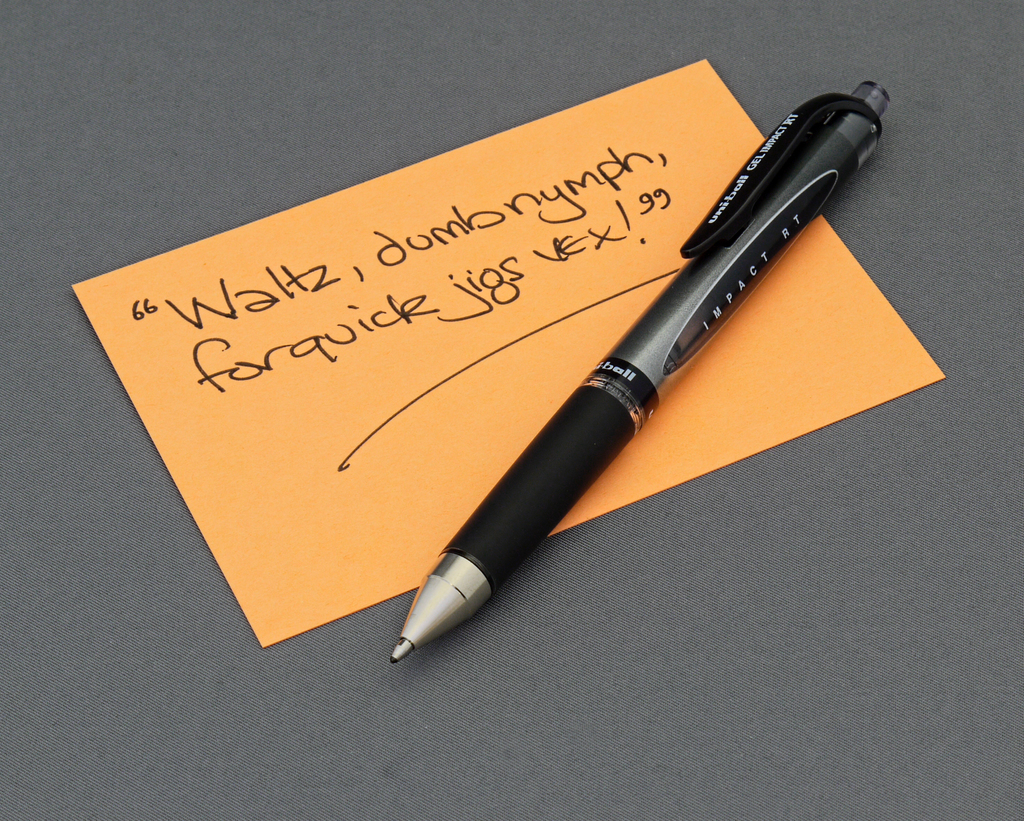 “Waltz, dumb nymph,
for quick jigs VEX!”
uni-ball GEL IMPACT RT
IMPACT RT
uni-ball